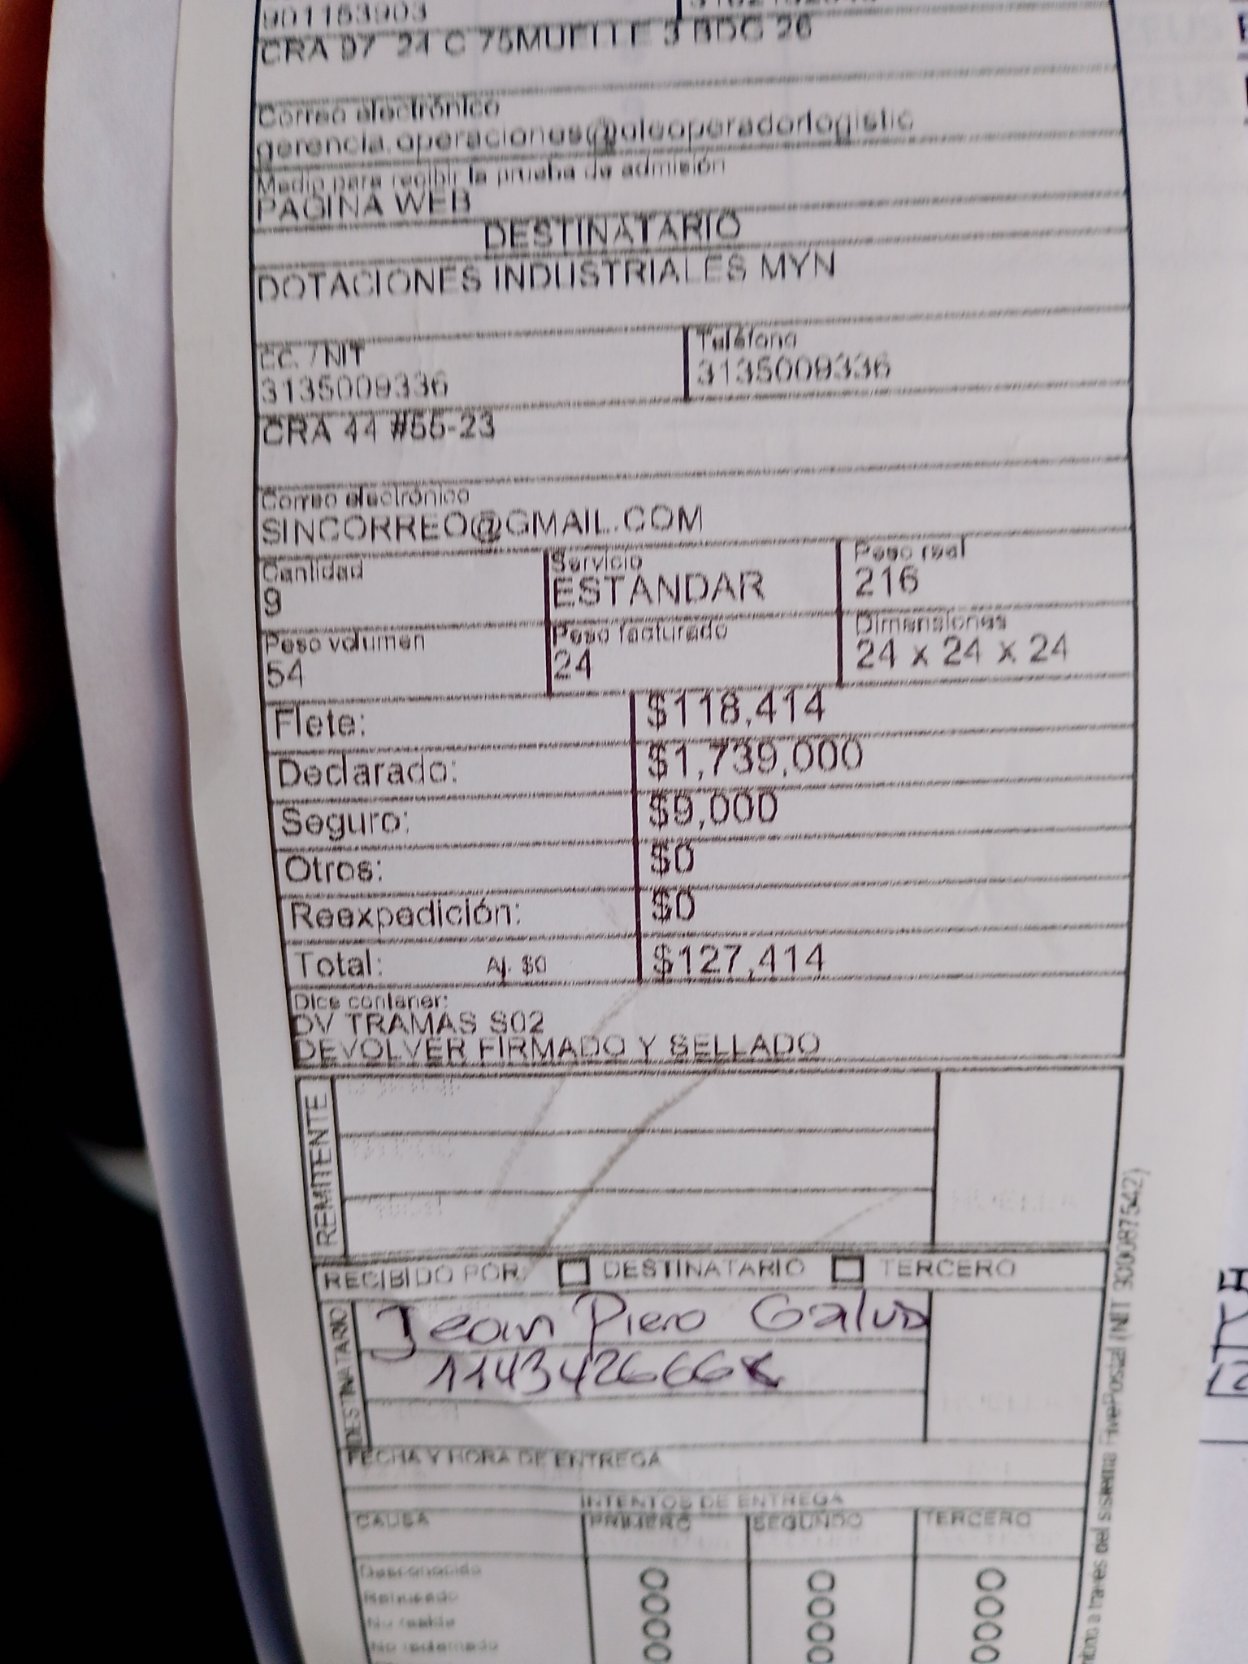 901153903
CRA 97 24 C 75MUELLE 3 BDG 26
Correo electrónico
gerencia.operaciones@oleoperadorlogistic
Medio para recibir la prueba de admisión
PAGINA WEB
DESTINATARIO
DOTACIONES INDUSTRIALES MYN
CC. / NIT Teléfono
3135009336 3135009336
CRA 44 #55-23
Correo electrónico
SINCORREO@GMAIL.COM
Cantidad Servicio Peso real
9 ESTANDAR 216
Peso volumen Peso facturado Dimensiones
54 24 24 x 24 x 24
Flete: $118,414
Declarado: $1,739,000
Seguro: $9,000
Otros: $0
Reexpedición: $0
Total: Aj. $0 $127,414
Dice contener:
DV TRAMAS S02
DEVOLVER FIRMADO Y SELLADO
REMITENTE
RECIBIDO POR: DESTINATARIO TERCERO
DESTINATARIO
Jean Piero Galvis
1143426668
FECHA Y HORA DE ENTREGA
INTENTOS DE ENTREGA
CAUSA PRIMERO SEGUNDO TERCERO
Desconocido
Rehusado
No reside
No reclamado
a través del sistema FivePostal (NIT 900087542)